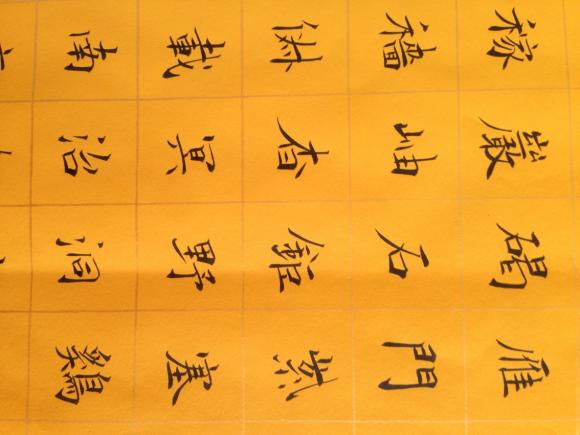 雁門紫塞雞
碣石鉅野洞
巖岫杳冥治
稼穡俶載南